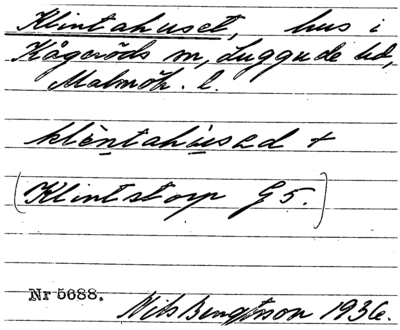 Klintahuset, hus i
Kågeröds sn, Luggude hd,
Malmöh. l.
klèntahúsəd +
(Klintstorp G5.)
Nr 5688.
Nils Bengtsson 1936.